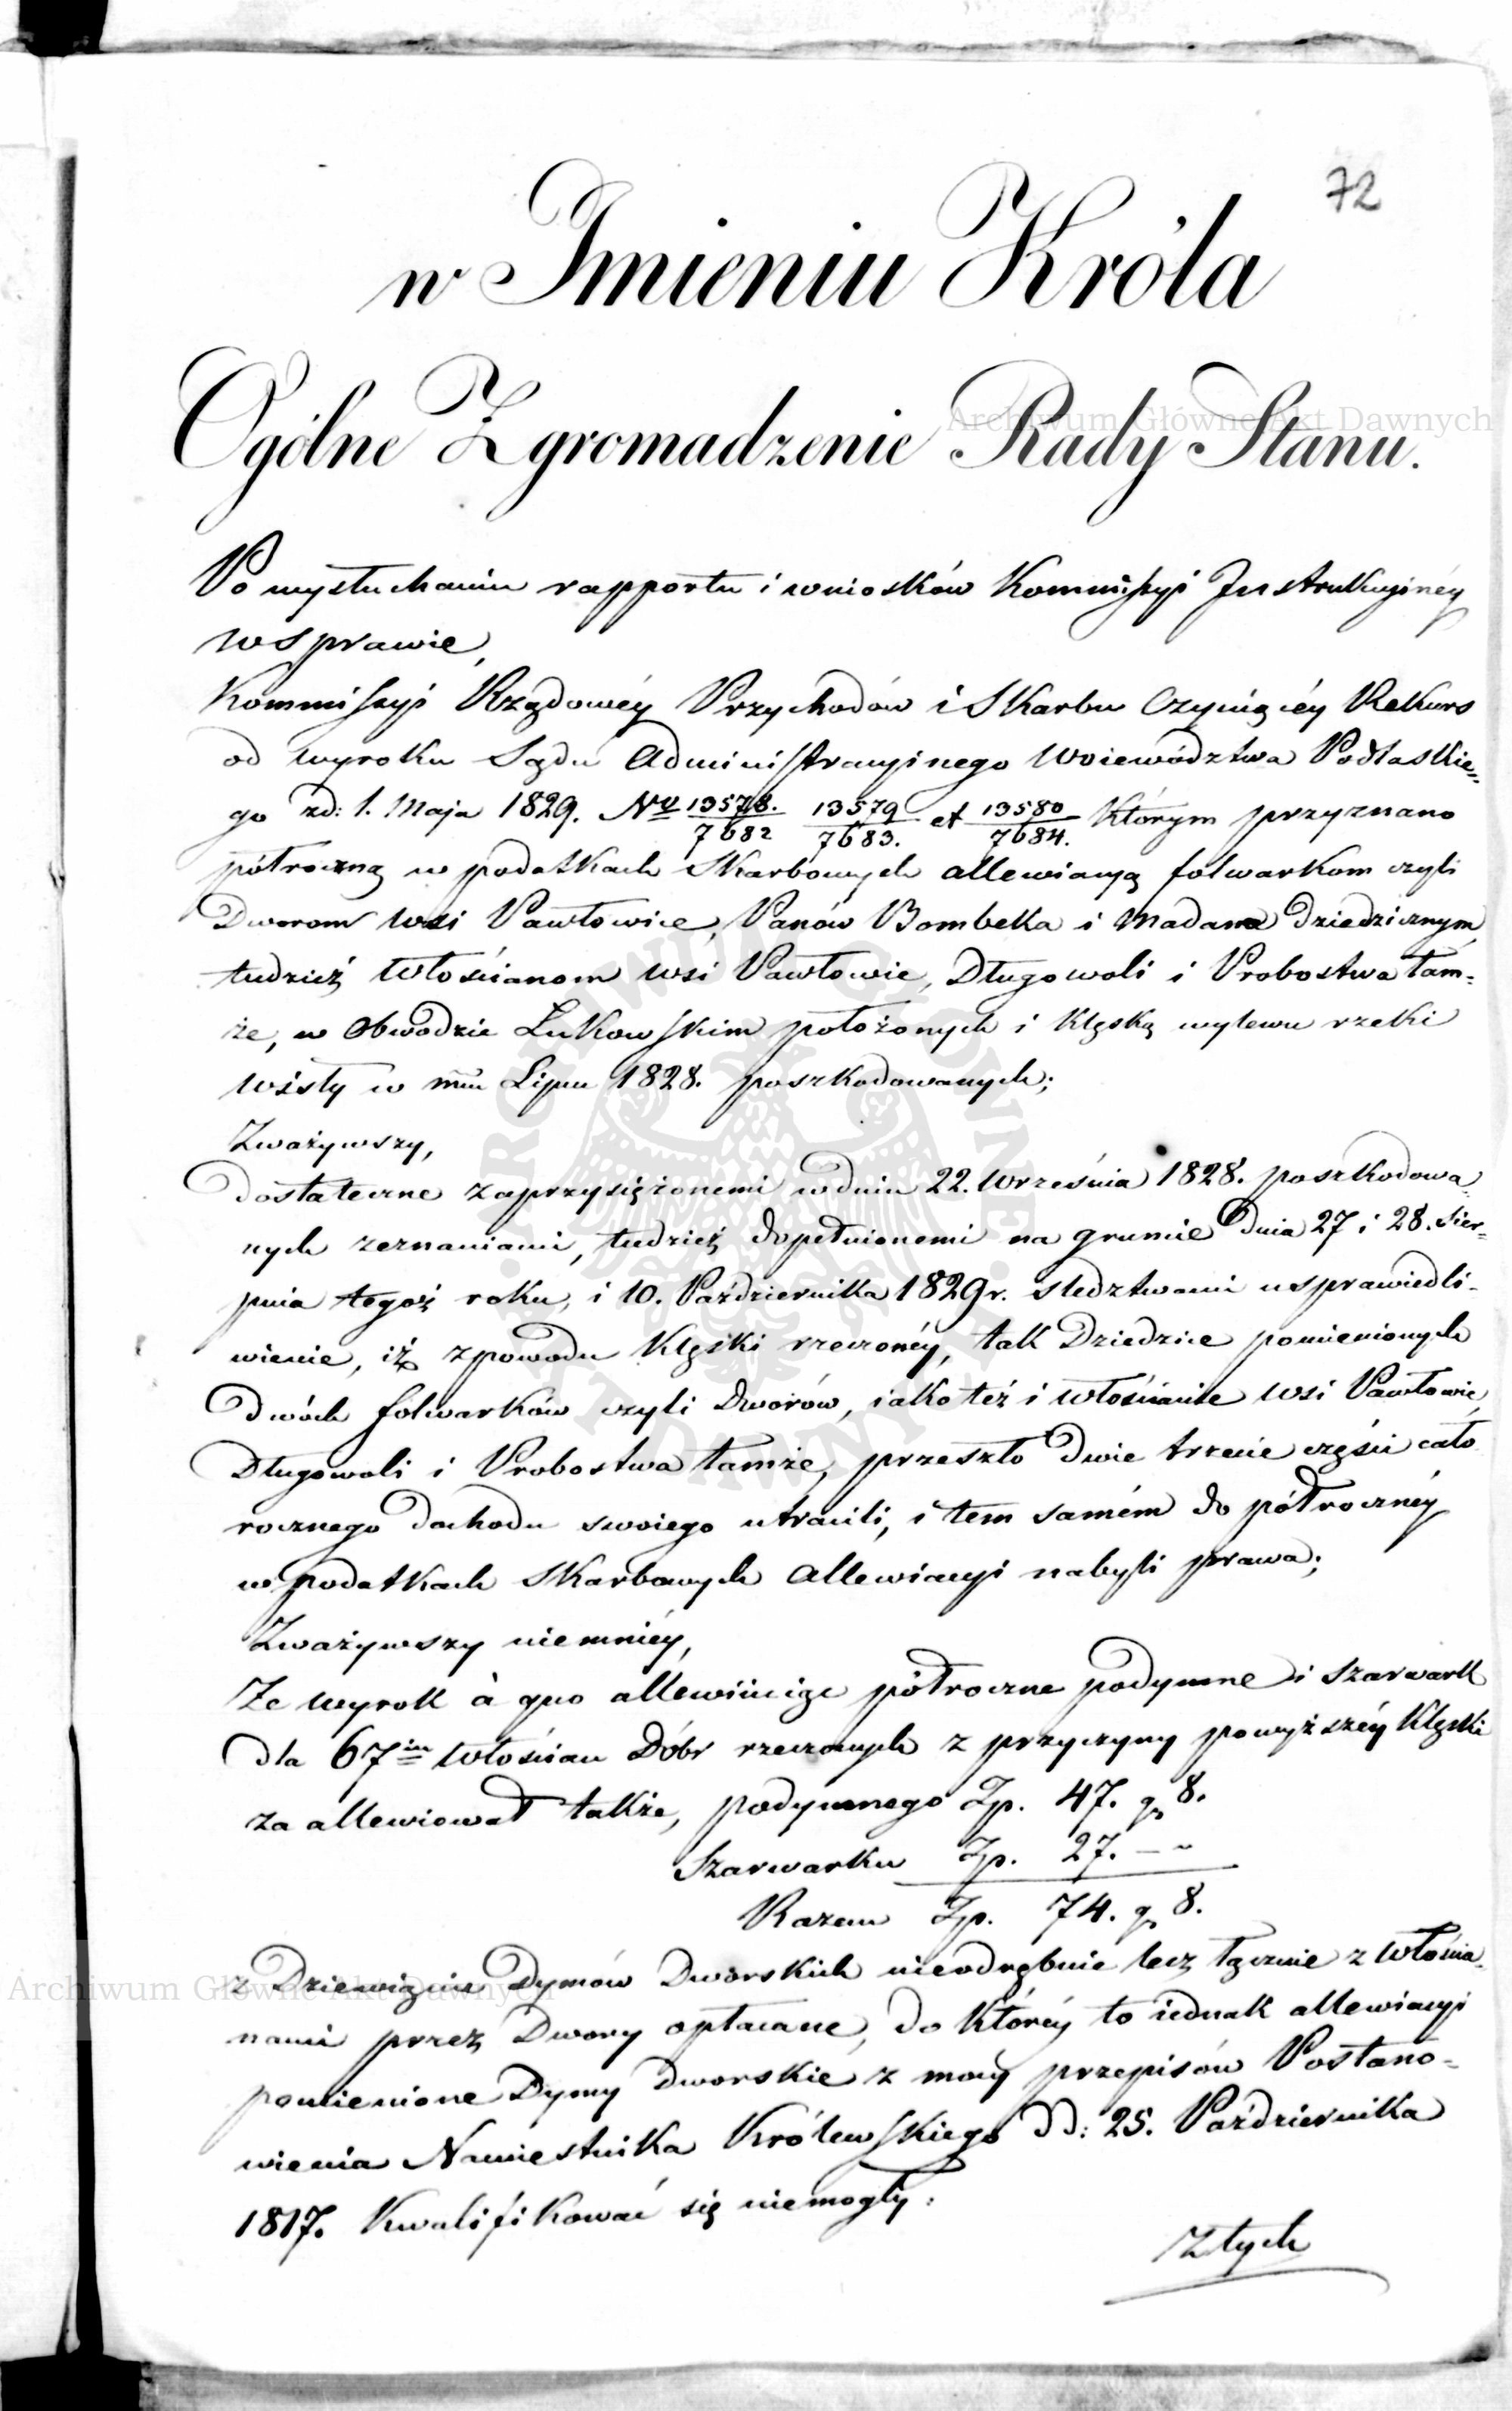 72
w Imieniu Króla
Ogólne Zgromadzenie Rady Stanu.
Po wysłuchaniu rapportu i wniosków Kommissyi Instrukcyinéy
w sprawie,
Kommissyi Rządowéy Przychodów i Skarbu czyniącéy Rekurs
od wyroku Sądu Administracyinego Woiewództwa Podlaskie=
go zd: 1. Maja 1829. Nro 13578./7682 13579/7683. et 13580/7684. którym przyznano
półroczną w podatkach Skarbowych allewiacyą folwarkom czyli
Dworom wsi Pawłowice, Panów Bombeka i Madana dziedzicznym,
tudzież Włościanom wsi Pawłowic, Długowoli i Probostwa tam=
że, w Obwodzie Łukowskim położonych i klęską wylewu rzeki
Wisły w mcu Lipcu 1828. poszkodowanych;
Zważywszy,
dostateczne zaprzysiężonemi w dniu 22. Września 1828. poszkodowa=
nych zeznaniami, tudzież dopełnionemi na gruncie dnia 27 i 28. Sier=
pnia tegoż roku, i 10. Października 1829 r. śledztwami usprawiedli=
wienie, iż z powodu klęski rzeczonéy, tak Dziedzice pomienionych
dwóch folwarków czyli Dworów, iako też i Włościanie wsi Pawłowic,
Długowoli i Probostwa tamże, przeszło dwie trzecie części cało
rocznego dochodu swoiego utracili, i tem samém do półrocznéy
w podatkach Skarbowych allewiacyi nabyli prawa;
Zważywszy niemniéy,
Że wyrok à quo allewiuiąc półroczne podymne i szarwark
dla 67iu Włościan Dóbr rzeczonych z przyczyny powyższéy klęski
za allewiował także, podymnego Zp. 47. gr 8.
Szarwarku Zp. 27. — „
Razem Zp. 74. gr 8.
z Dziewięciu Dymów Dworskich nieodrębnie lecz łącznie z Włościa=
nami przez Dwory opłacane, do któréy to iednak allewiacyi
pomienione Dymy dworskie z mocy przepisów Postano=
wienia Namiestnika Królewskiego dd: 25. Października
1817. kwalifikować się niemogły:
Z tych
Archiwum Główne Akt Dawnych
Archiwum Główne Akt Dawnych
ARCHIWUM GŁÓWNE AKT DAWNYCH